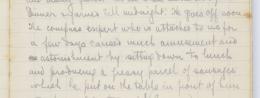 Dinner & yarned till midnight. He goes off soon
The compass expert who is attached to us for
a few days caused much amusement and
astonishment by sitting down to lunch
and producing a greasy parcel of sausages
which he put on the table in front of him